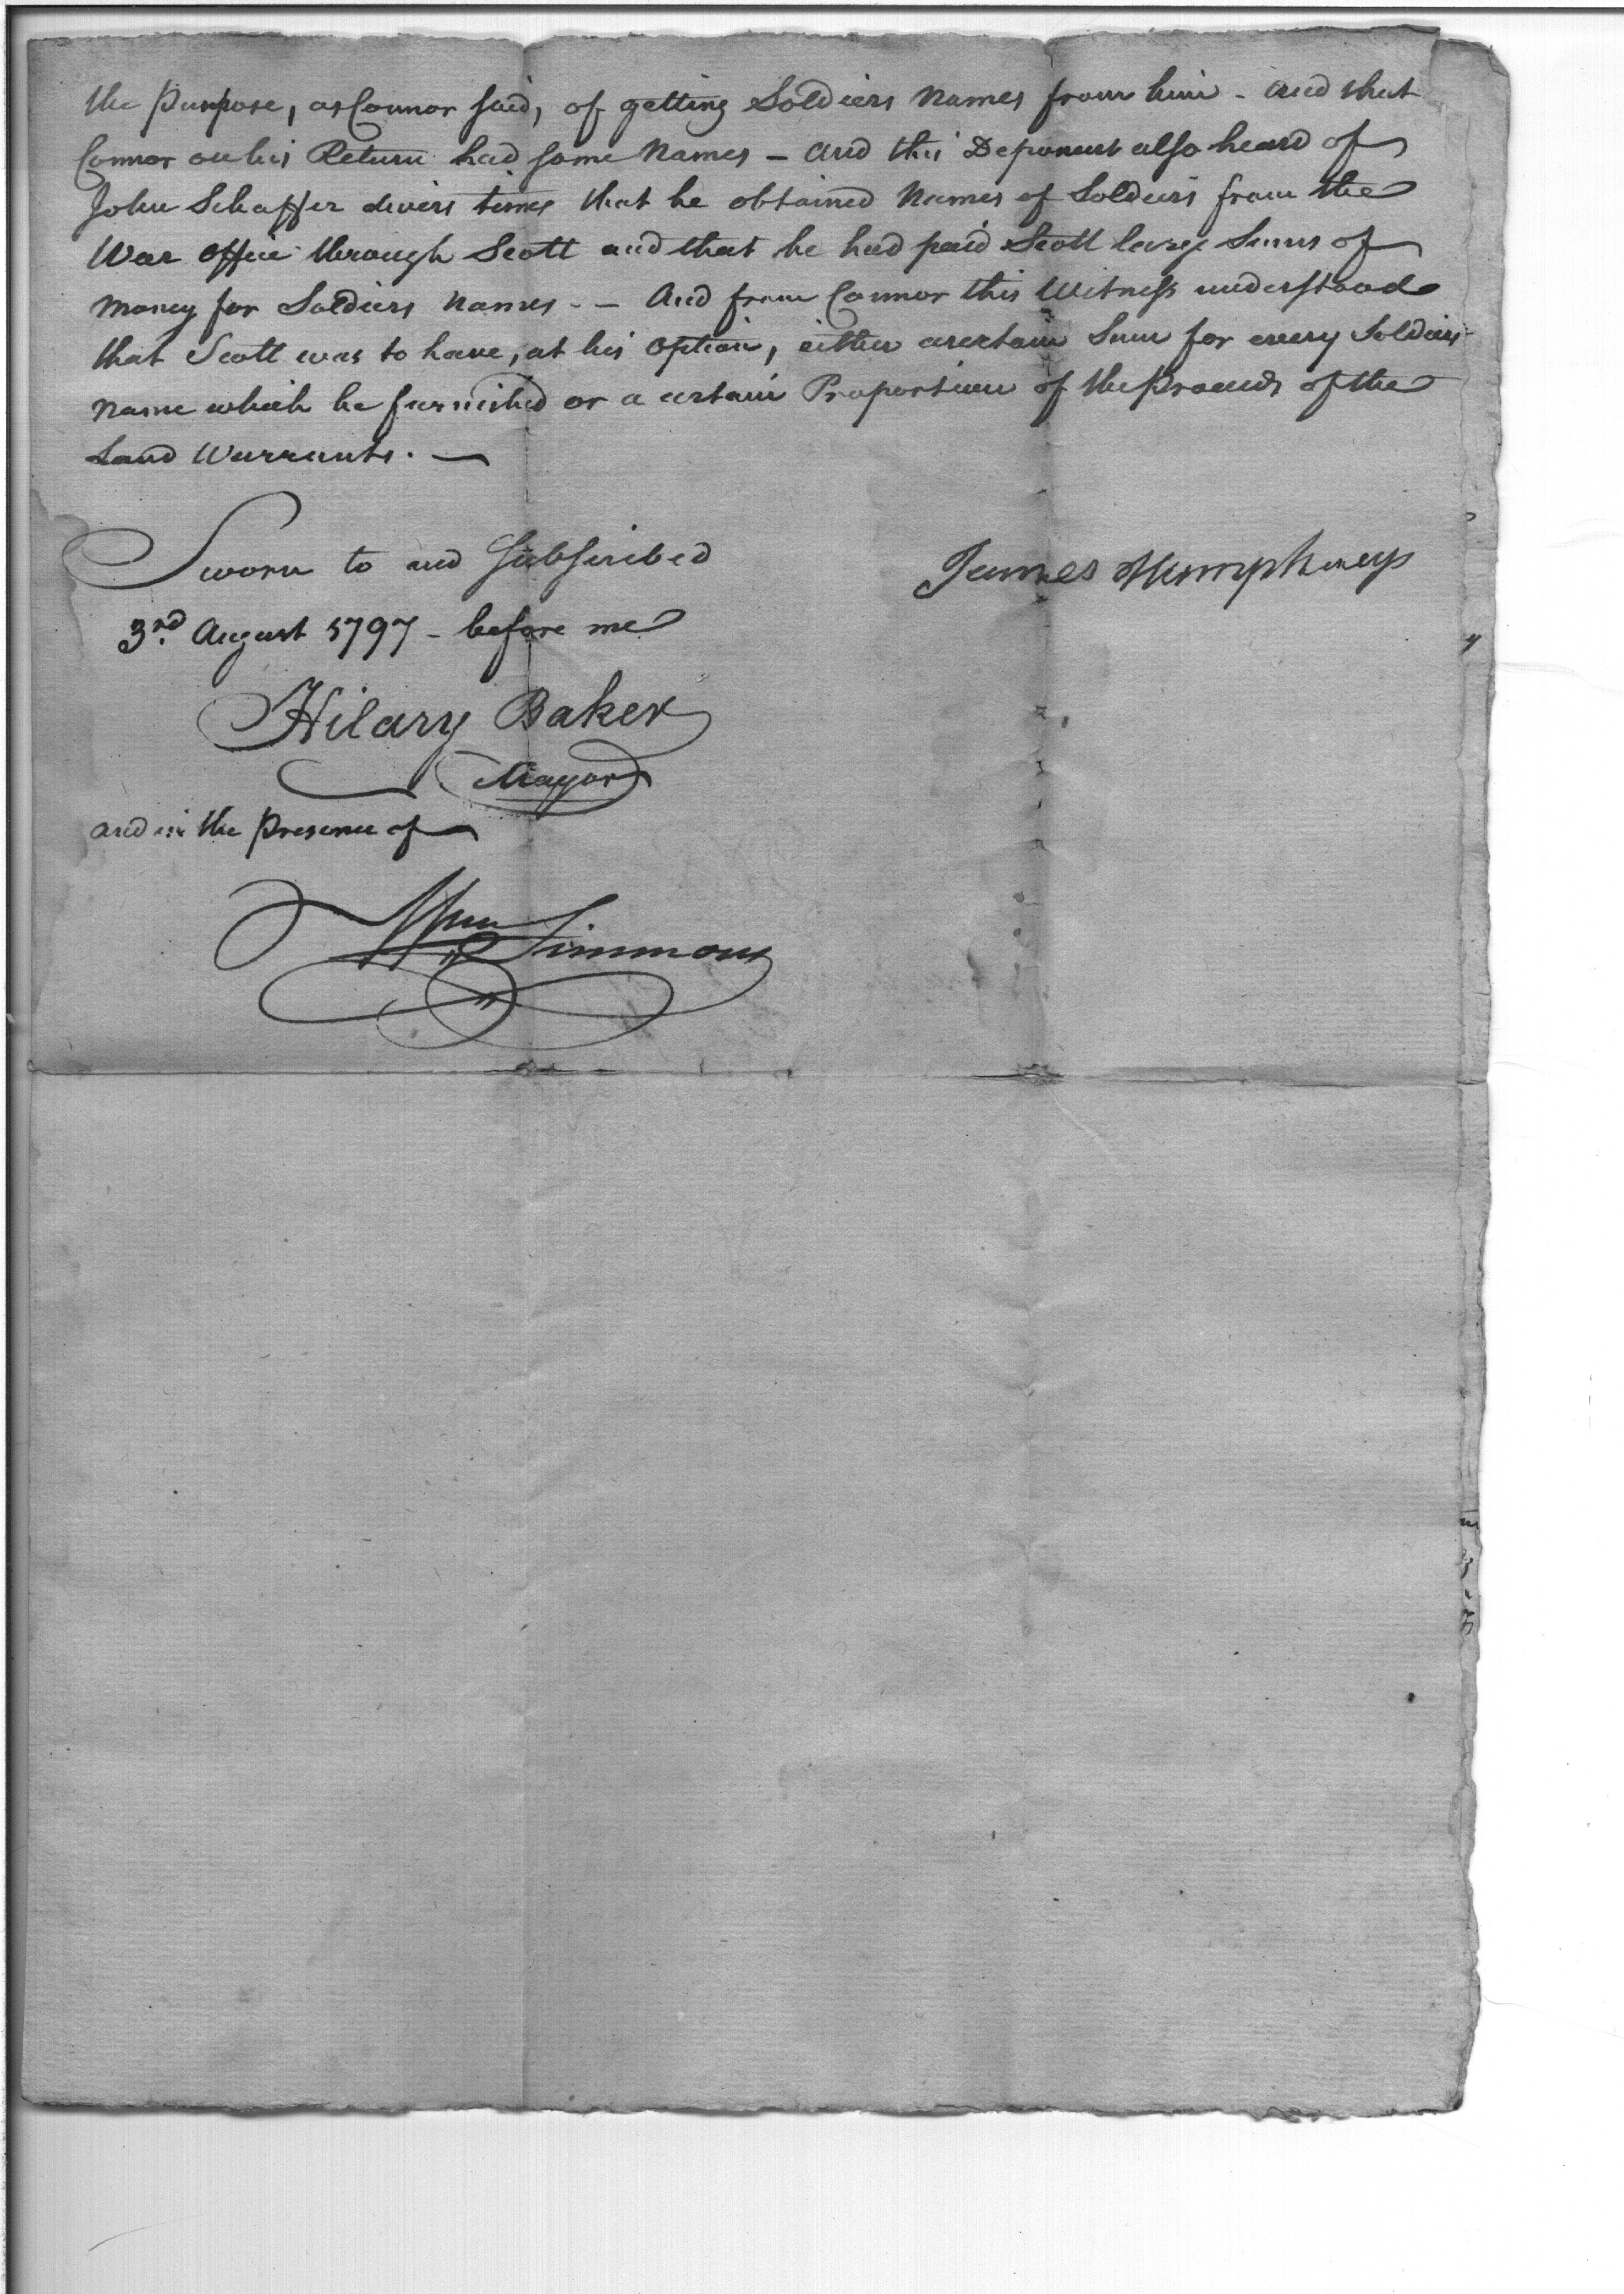 the Purpose, as Connor said, of getting Soldiers Names from him - and that
Connor on his Return had some Names - and this Deponent also heard of
John Schaffer divers times that he obtained Names of Soldiers from the
War Office through Scott and that he had paid Scott large Sums of
Money for Soldiers Names - - And from Connor this Witness understood
that Scott was to have, at his Option, either a certain Sum for every Soldiers
name which he furnished or a certain Proportion of the Proceeds of the
Land Warrants. —
Sworn to and Subscribed
James Humphreys
3rd. August 1797 - before me
Hilary Baker
Mayor
and in the Presence of
Wm Simmons